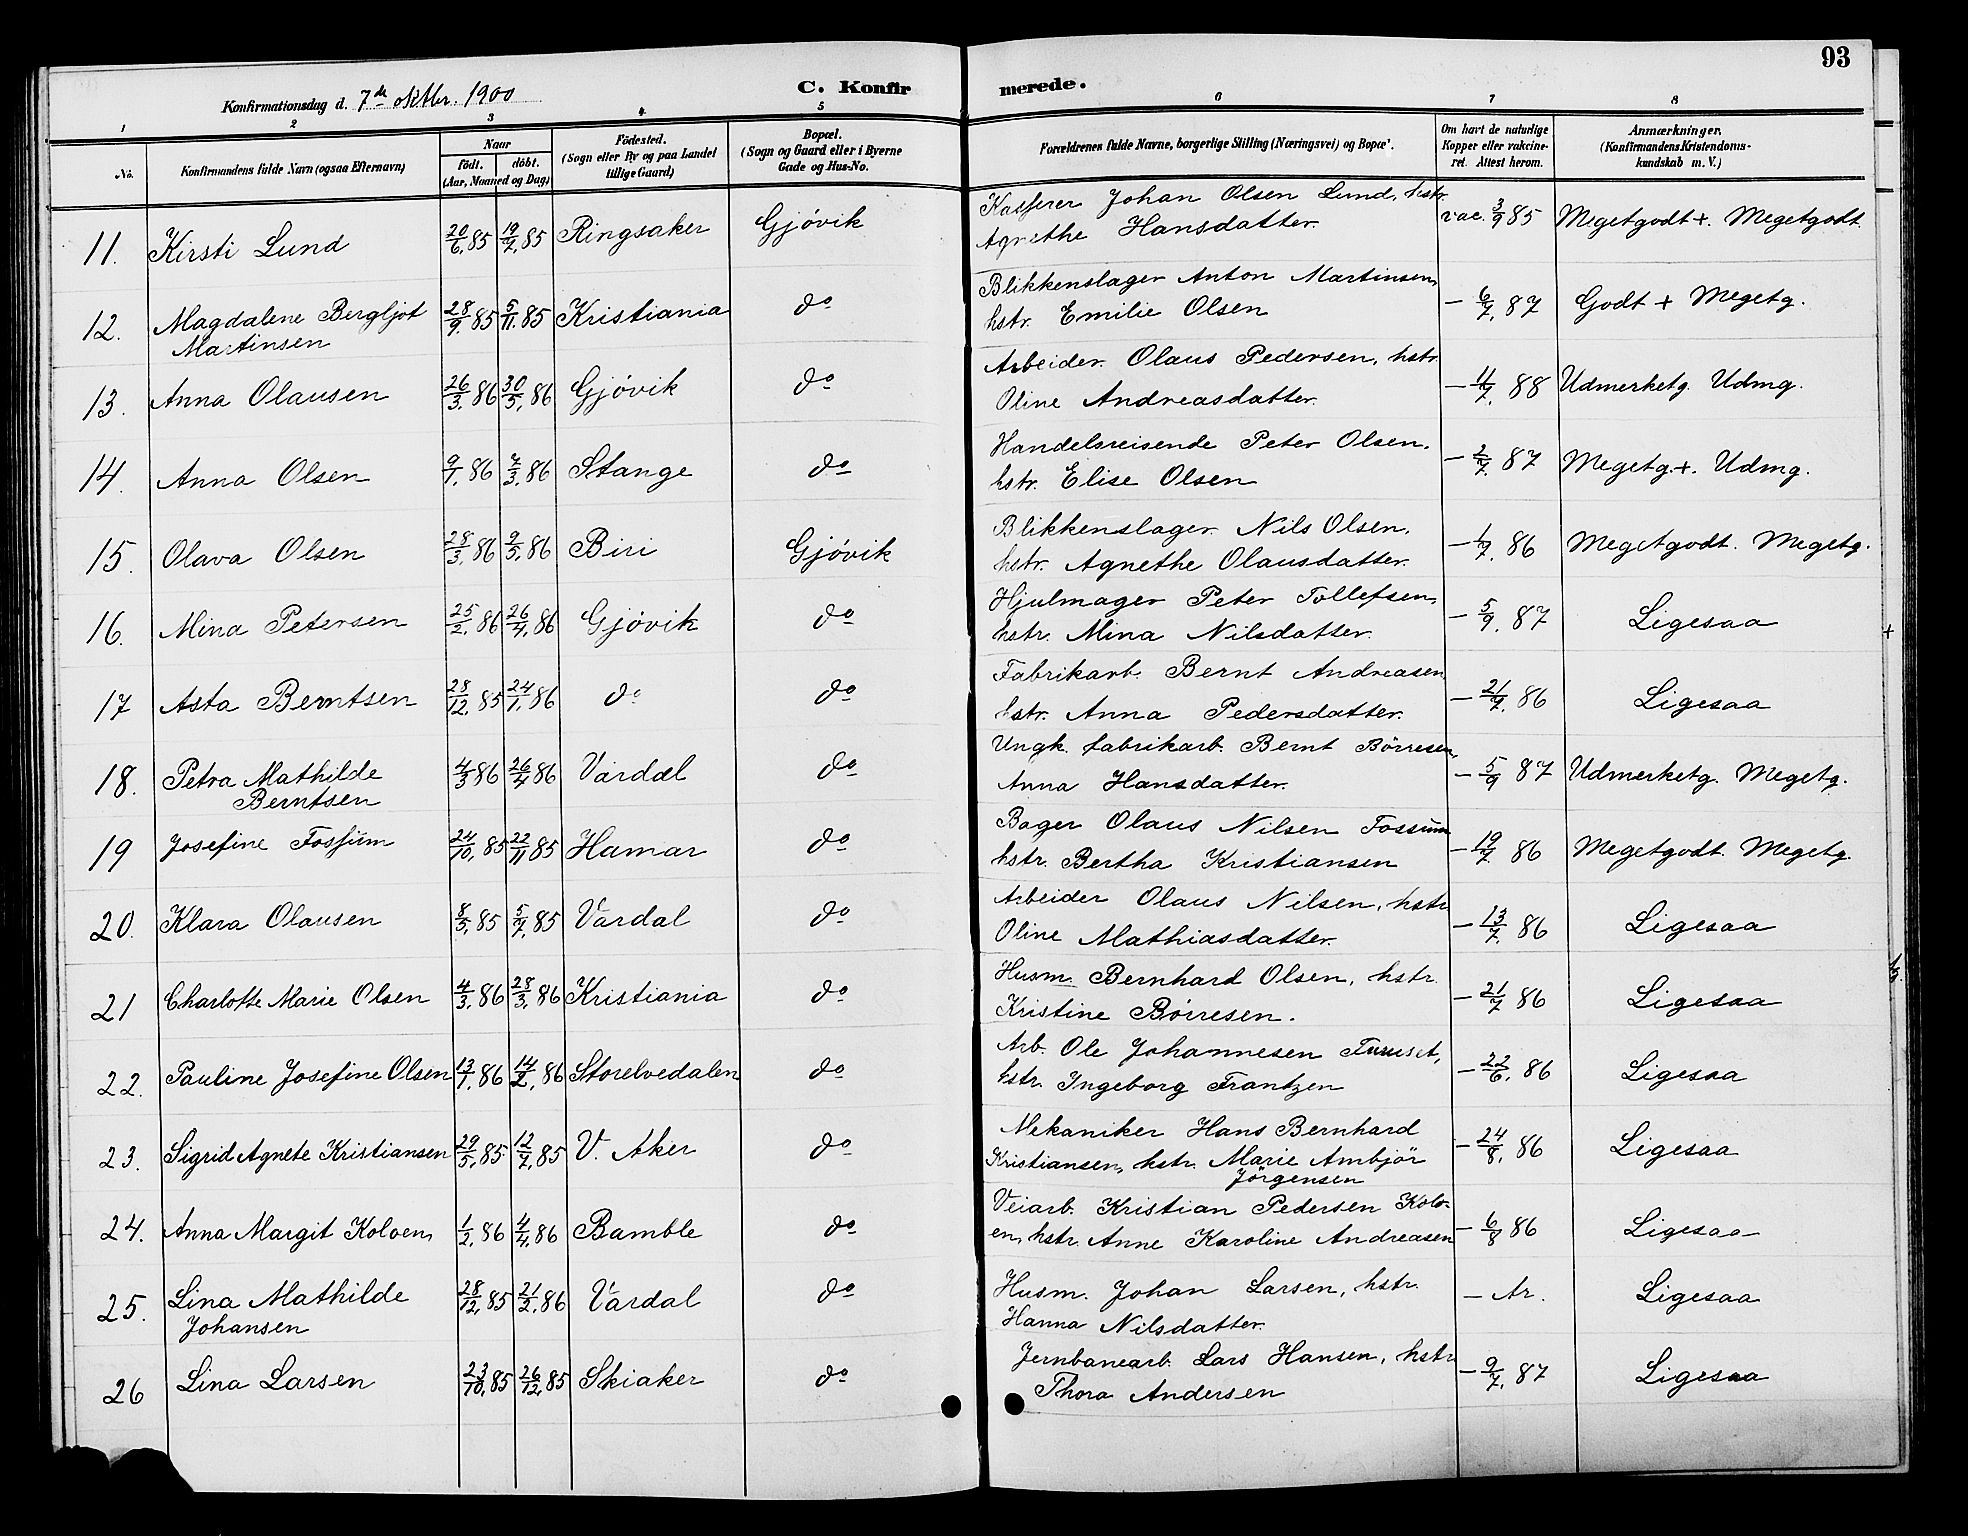 93
Konfirmationsdag d. 7de oktbr. 1900
C. Konfirmerede.
1 2 3 4 5 6 7 8
No.
Konfirmandens fulde Navn (ogsaa Efternavn)
Naar
födt. döbt.
(Aar, Maaned og Dag)
Födested.
(Sogn eller By og paa Landet
tillige Gaard)
Bopæl.
(Sogn og Gaard eller i Byerne
Gade og Hus-No.
Forældrenes fulde Navne, borgerlige Stilling (Næringsvei) og Bopæl.
Om havt de naturlige
Kopper eller vakcine-
ret. Attest herom.
Anmærkninger.
(Konfirmandens Kristendoms-
kundskab m. V.)
11. Kirsti Lund 20/6.85 19/7.85 Ringsaker Gjövik Kasserer Johan Olsen Lund, hstr. vac. 3/9 85 Megetgodt +. Megetgodt.
Agnethe Hansdatter.
12. Magdalene Bergljot 28/9.85 5/11.85 Kristiania do Blikkenslager Anton Martinsen, — 6/7.87 Godt + Megetg.
Martinsen hstr. Emilie Olsen
13. Anna Olausen 26/3.86 30/5.86 Gjövik do Arbeider. Olaus Pedersen, hstr. — 4/7. 88 Udmerketg. Udmg.
Oline Andreasdatter.
14. Anna Olsen 9/1.86 7/3.86 Stange do Handelsreisende Peter Olsen, — 2/7. 87 Megetg. +. Udmg.
hstr. Elise Olsen
15. Olava Olsen 28/3.86 9/5.86 Biri Gjövik Blikkenslager. Nils Olsen, — 1/7. 86 Megetgodt. Megetg.
hstr. Agnethe Olausdatter.
16. Mina Petersen 25/2.86 26/4.86 Gjövik do Hjulmager Peter Tollefsen, — 5/9. 87 Ligesaa
hstr. Mina Nilsdatter.
17 Asta Berntsen 28/12.85 24/1.86 do do Fabrikarb. Bernt Andreasen — 21/9. 86 Ligesaa
hstr. Anna Pedersdatter.
18. Petra Mathilde 4/3 86 26/4 86 Vardal do Ungk. fabrikarb. Bernt Börresen, — 5/9 87 Udmerketg. Megetg.
Berntsen Anna Hansdatter.
19 Josefine Fossum 24/10.85 22/11 85 Hamar do Bager Olaus Nilsen Fossum — 19/7. 86 Megetgodt. Megetg.
hstr. Bertha Kristiansen
20. Klara Olausen 8/5.85 5/7.85 Vardal do Arbeider Olaus Nilsen, hstr — 13/7. 86 Ligesaa
Oline Mathiasdatter.
21 Charlotte Marie Olsen 4/3.86 28/3.86 Kristiania do Husm. Bernhard Olsen, hstr. — 21/7 86 Ligesaa
Kristine Börresen.
22. Pauline Josefine Olsen 13/1.86 14/2.86 Storelvedalen do Arb. Ole Johannesen Furuset, — 22/6. 86 Ligesaa
hstr. Ingeborg Frantzen
23. Sigrid Agnete Kristiansen 29/5.85 12/7.85 V. Aker do Mekaniker Hans Bernhard — 24/8. 86 Ligesaa
Kristiansen, hstr. Marie Ambjör
Jörgensen
24. Anna Margit Kolven, 1/2.86 4/4.86 Bamble do Veiarb. Kristian Pedersen Kolv- — 6/8 86 Ligesaa
en, hstr. Anne Karoline Andreasen
25. Lina Mathilde 28/12.85 21/2.86 Vardal do Husm. Johan Larsen, hstr. — Ar. Ligesaa
Johansen Hanna Nilsdatter.
26 Lina Larsen 23/10.85 26/12.85 Skiaker do Jernbanearb. Lars Hansen, hstr — 9/7. 87 Ligesaa
Thora Andersen